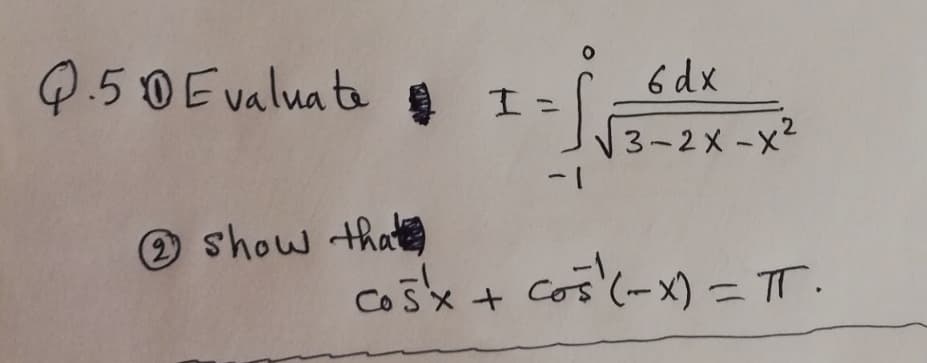 Q.5 ① Evaluate I = ∫₋₁⁰ 6dx / √(3-2x-x²)
② show that
cos⁻¹x + cos⁻¹(-x) = π.